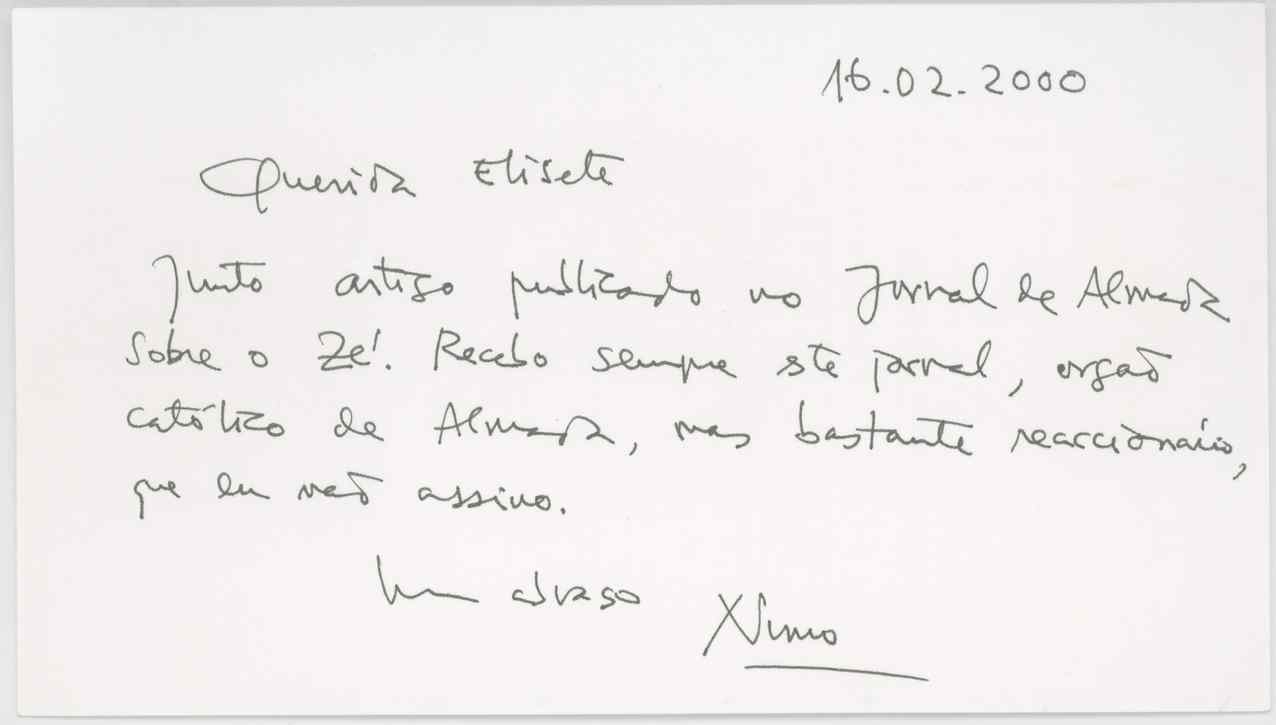 16.02.2000
Querida Elisete
Junto artigo publicado no Jornal de Almada
sobre o Zé. Recebo sempre este jornal, orgão
católico de Almada, mas bastante reaccionário,
que eu não assino.
Um abraço